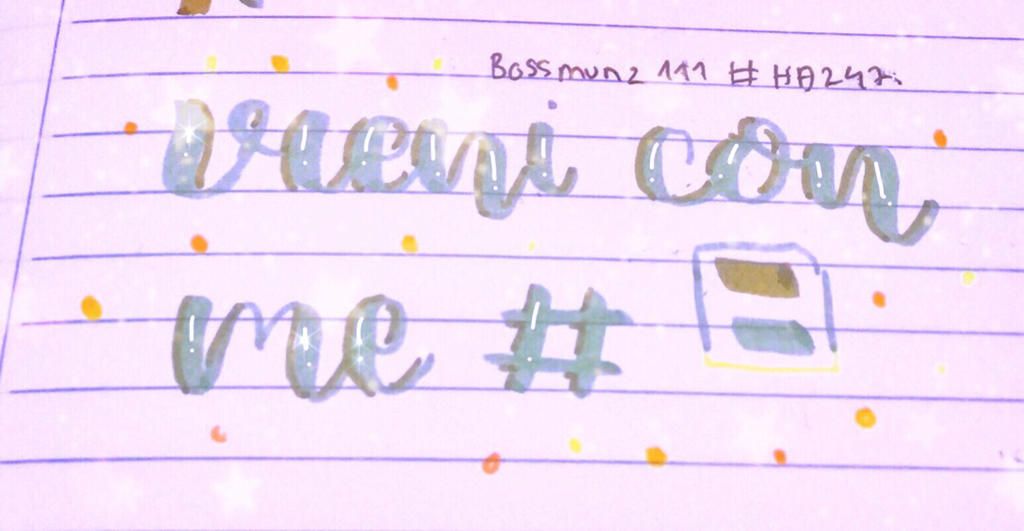 Bossmunz 111 # HA247.
vieni con
me #